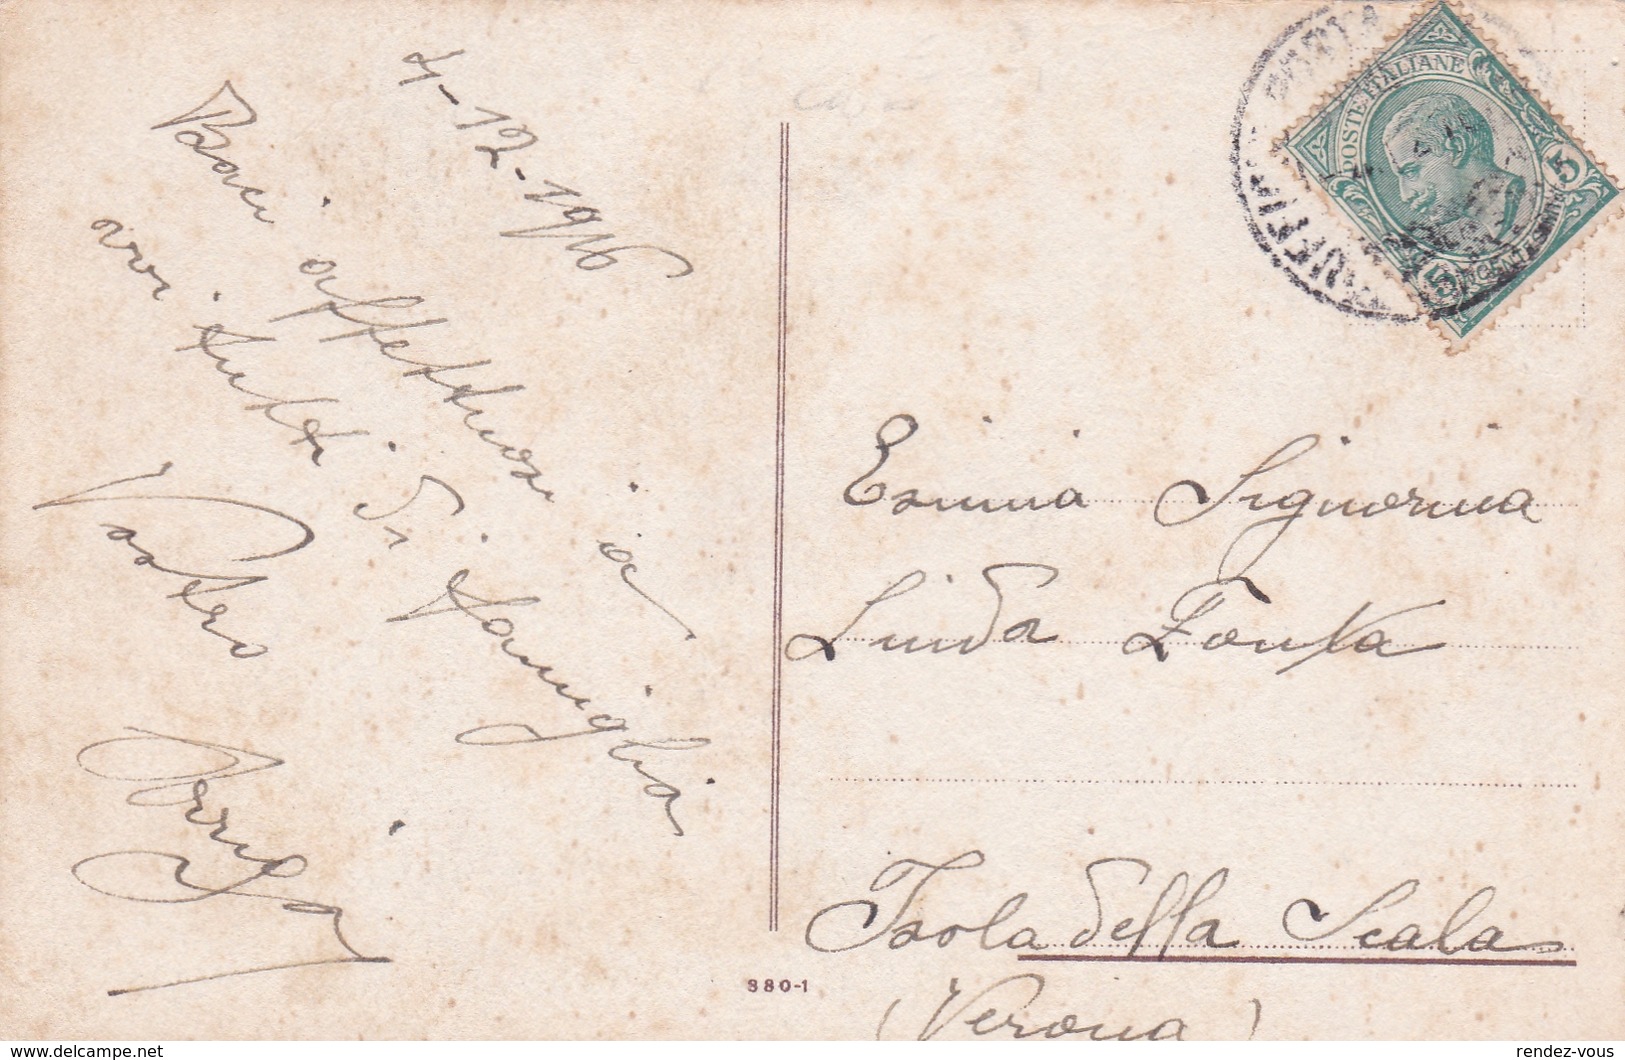 4-12-1916
Baci affettuosi a
voi tutti di famiglia
Vostro
POSTE ITALIANE
5
5
Esimia Signorina
Linda
Isola della Scala
(Verona)
380-1
www.delcampe.net
rendez-vous